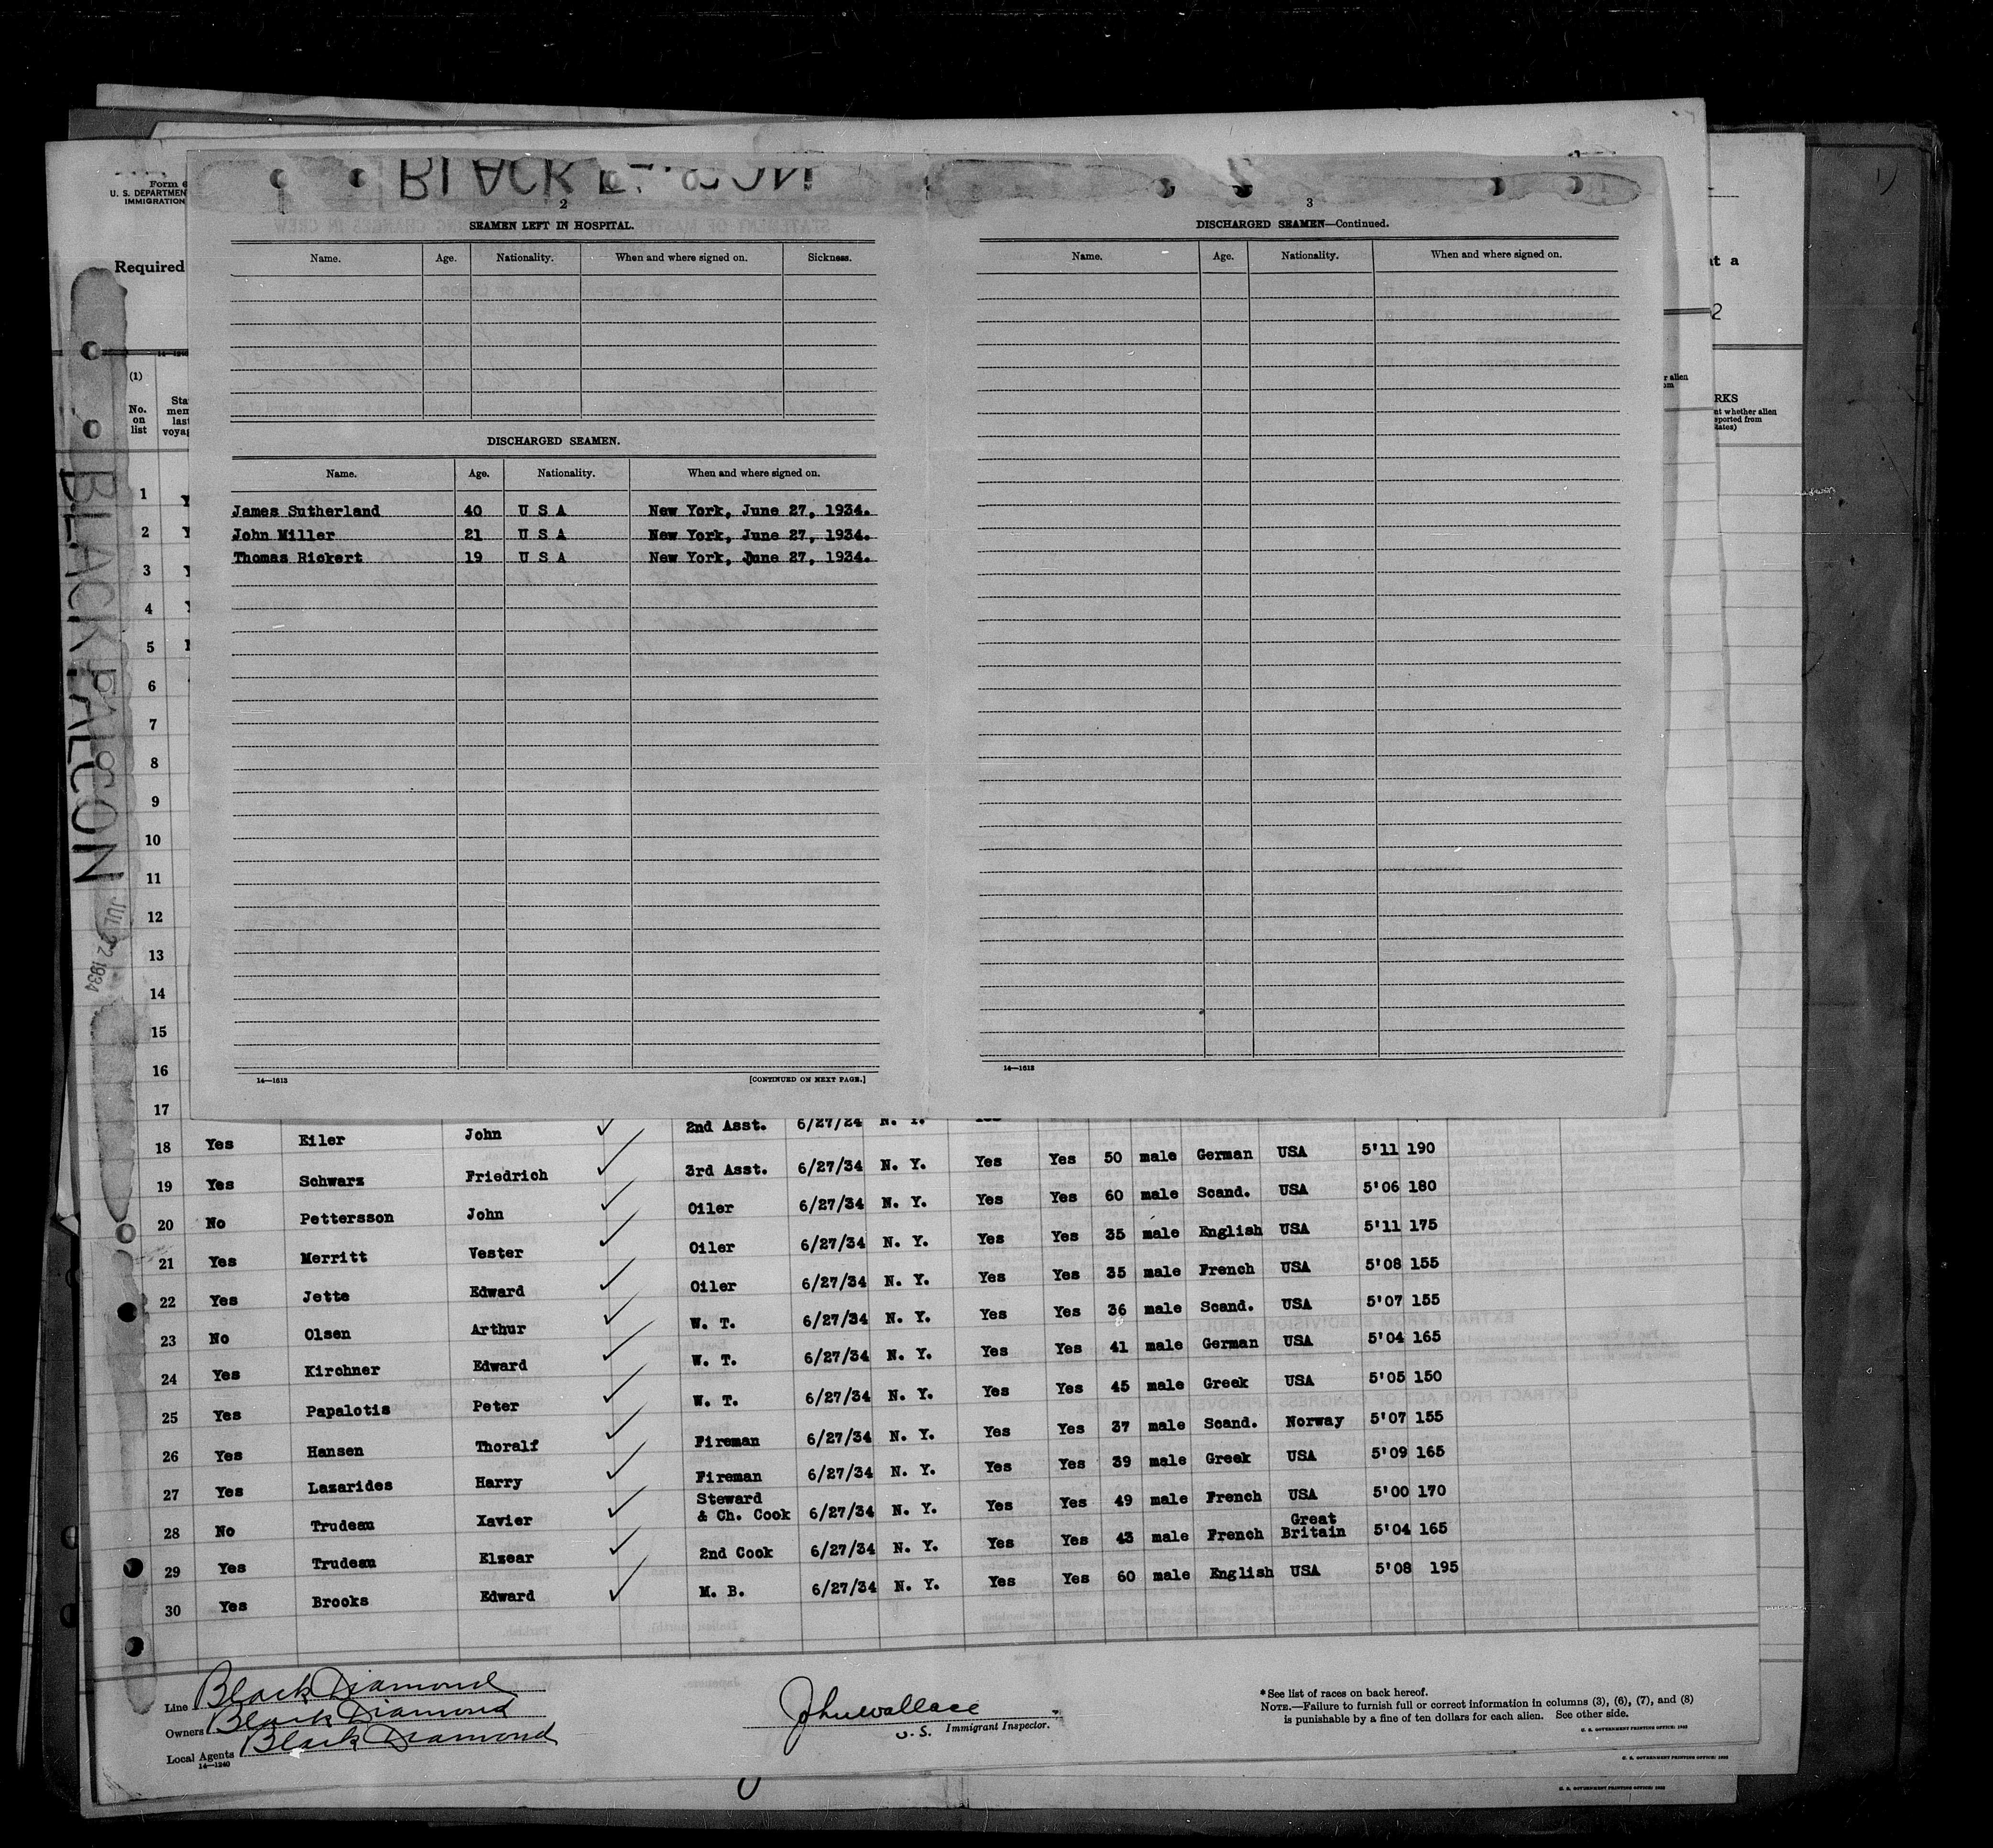 Form 6
U. S. DEPARTMEN
IMMIGRATION
Required
(1)
No. on list
Sta
men
last
voyag
BLACK FALCON
JUL 22 1934
2
SEAMEN LEFT IN HOSPITAL.
Name. Age. Nationality. When and where signed on. Sickness.
DISCHARGED SEAMEN.
Name. Age. Nationality. When and where signed on.
James Sutherland 40 U S A New York, June 27, 1934.
John Miller 21 U S A New York, June 27, 1934.
Thomas Rickert 19 U S A New York, June 27, 1934.
14—1613 [CONTINUED ON NEXT PAGE.]
3
DISCHARGED SEAMEN—Continued.
Name. Age. Nationality. When and where signed on.
14—1613
t a
2
r alien
om
RKS
nt whether alien
eported from
States)
1
2
3
4
5
6
7
8
9
10
11
12
13
14
15
16
17
18 Yes Eiler John 2nd Asst. 6/27/24 N. Y.
19 Yes Schwarz Friedrich 3rd Asst. 6/27/34 N. Y. Yes Yes 50 male German USA 5'11 190
20 No Pettersson John Oiler 6/27/34 N. Y. Yes Yes 60 male Scand. USA 5'06 180
21 Yes Merritt Vester Oiler 6/27/34 N. Y. Yes Yes 35 male English USA 5'11 175
22 Yes Jette Edward Oiler 6/27/34 N. Y. Yes Yes 35 male French USA 5'08 155
23 No Olsen Arthur W. T. 6/27/34 N. Y. Yes Yes 36 male Scand. USA 5'07 155
24 Yes Kirchner Edward W. T. 6/27/34 N. Y. Yes Yes 41 male German USA 5'04 165
25 Yes Papalotis Peter W. T. 6/27/34 N. Y. Yes Yes 45 male Greek USA 5'05 150
26 Yes Hansen Thoralf Fireman 6/27/34 N. Y. Yes Yes 37 male Scand. Norway 5'07 155
27 Yes Lazarides Harry Fireman 6/27/34 N. Y. Yes Yes 39 male Greek USA 5'09 165
28 No Trudeau Xavier Steward & Ch. Cook 6/27/34 N. Y. Yes Yes 49 male French USA 5'00 170
29 Yes Trudeau Elzear 2nd Cook 6/27/34 N. Y. Yes Yes 43 male French Great Britain 5'04 165
30 Yes Brooks Edward M. B. 6/27/34 N. Y. Yes Yes 60 male English USA 5'08 195
Line Black Diamond
Owners Black Diamond
Local Agents Black Diamond
14—1240
John Wallace
U. S. Immigrant Inspector.
*See list of races on back hereof.
NOTE.—Failure to furnish full or correct information in columns (3), (6), (7), and (8)
is punishable by a fine of ten dollars for each alien. See other side.
U. S. GOVERNMENT PRINTING OFFICE: 1932
U. S. GOVERNMENT PRINTING OFFICE: 1932
U. S. GOVERNMENT PRINTING OFFICE: 1932